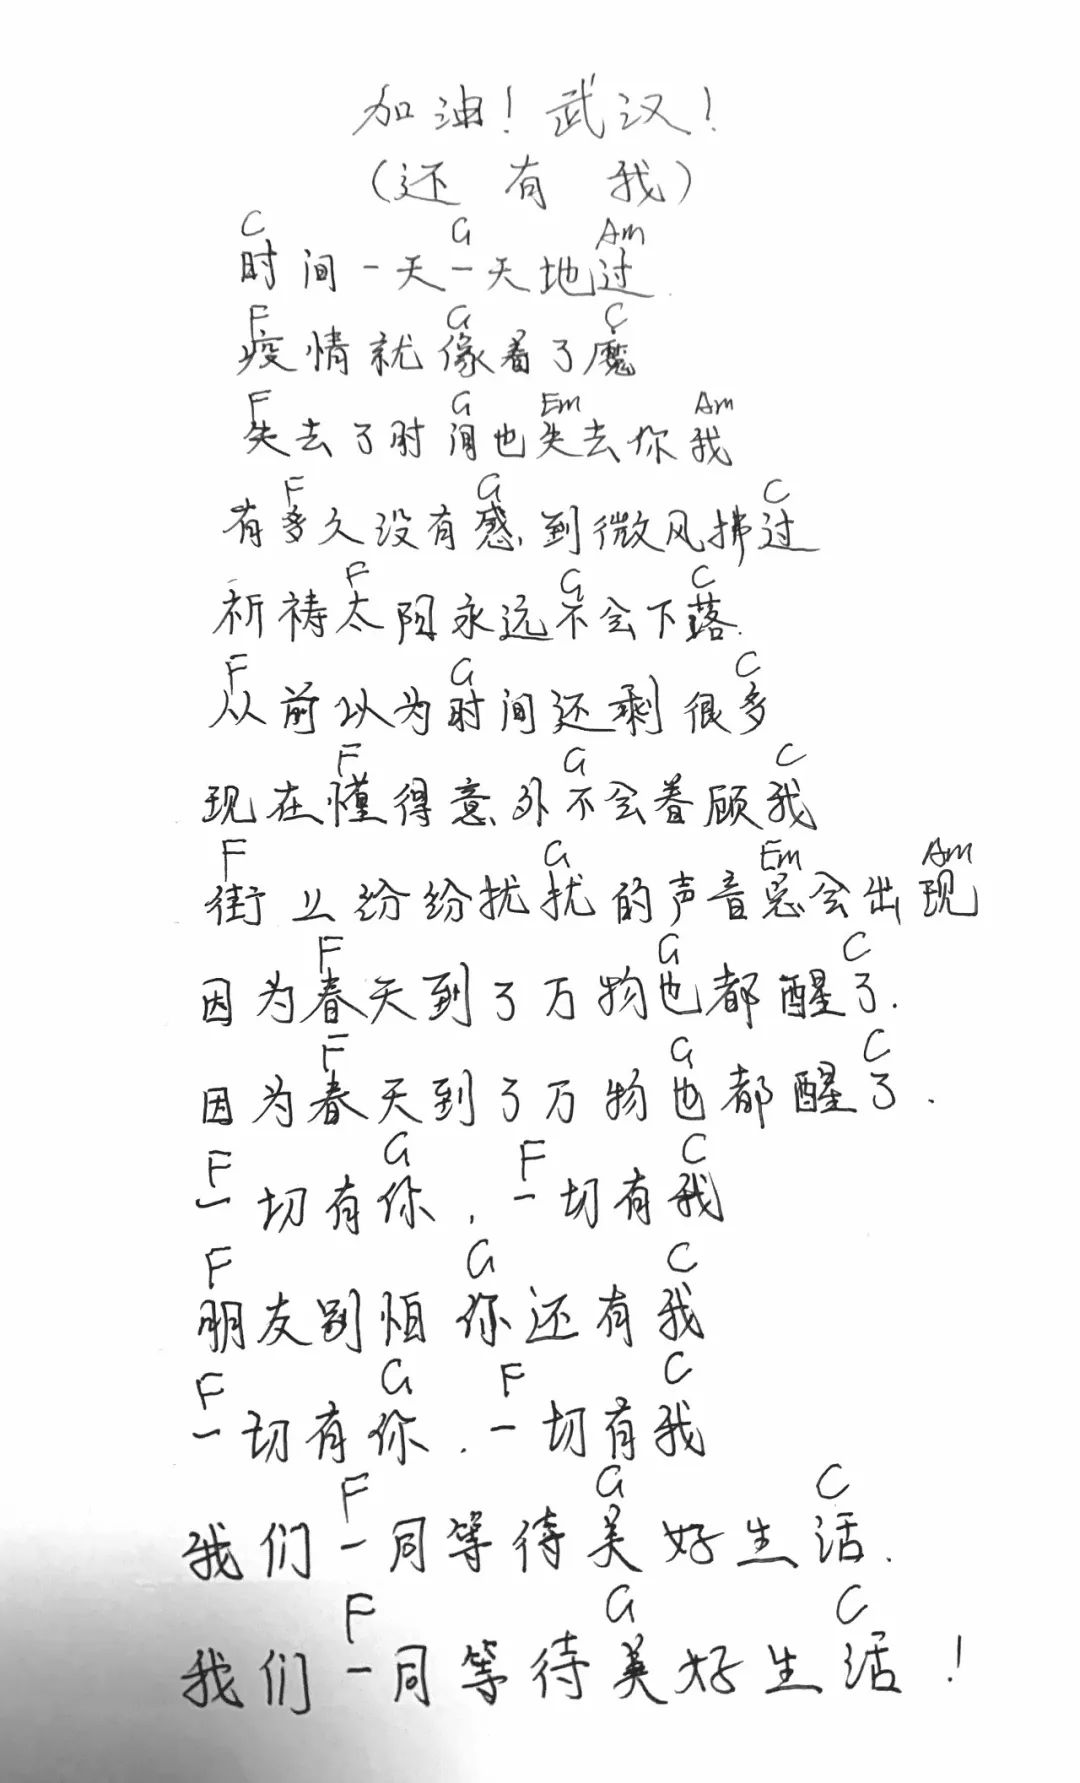 加油！武汉！
（还有我）
C G Am
时间一天一天地过
F G C
疫情就像着了魔
F G Em Am
失去了时间也失去你我
F G C
有多久没有感到微风拂过
F G C
祈祷太阳永远不会下落.
F G C
从前以为时间还剩很多
F G C
现在懂得意外不会眷顾我
F G Em Am
街上纷纷扰扰的声音总会出现
F G C
因为春天到了万物也都醒了.
F G C
因为春天到了万物也都醒了.
F G F C
一切有你，一切有我
F G C
朋友别怕你还有我
F G F C
一切有你，一切有我
F G C
我们一同等待美好生活.
F G C
我们一同等待美好生活！